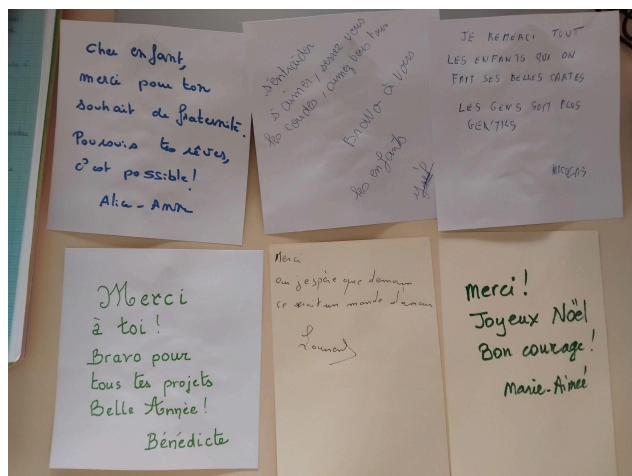 Cher enfant,
merci pour ton
souhait de fraternité.
Poursuis tes rêves,
c'est possible!
Alice-Anne
s'entraider
s'aimer, serrez vous
les coudes, aimez vous tous
Bravo à vous
les enfants
JE REMERCI TOUT
LES ENFANTS QUI ON
FAIT SES BELLES CARTES
LES GENS SONT PLUS
GENTILS
NICOLAS
Merci
à toi!
Bravo pour
tous tes projets
Belle Année!
Bénédicte
Merci
oui j'espère que demain
ce un monde d'amour
Laurent
merci!
Joyeux Noël
Bon courage!
Marie-Aimée